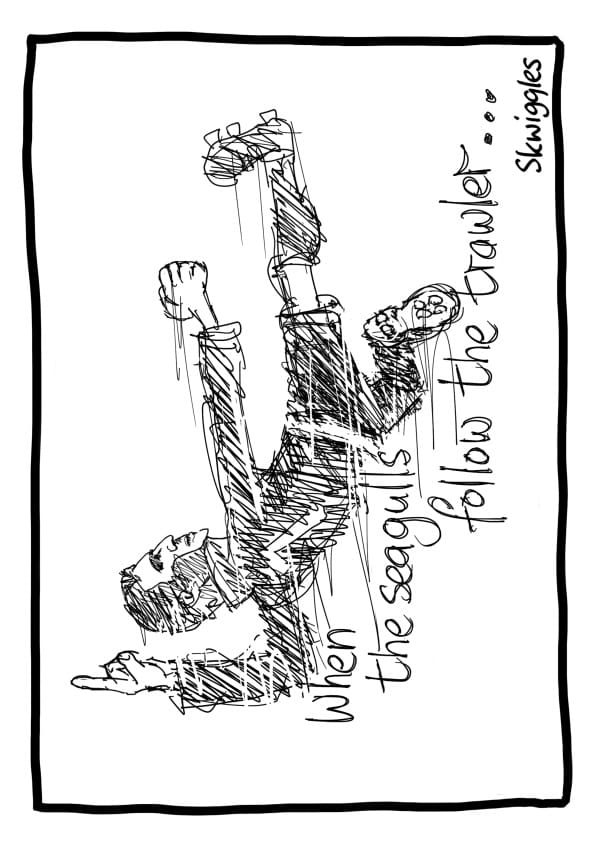 When
the seagulls
follow the trawler...
Skwiggles